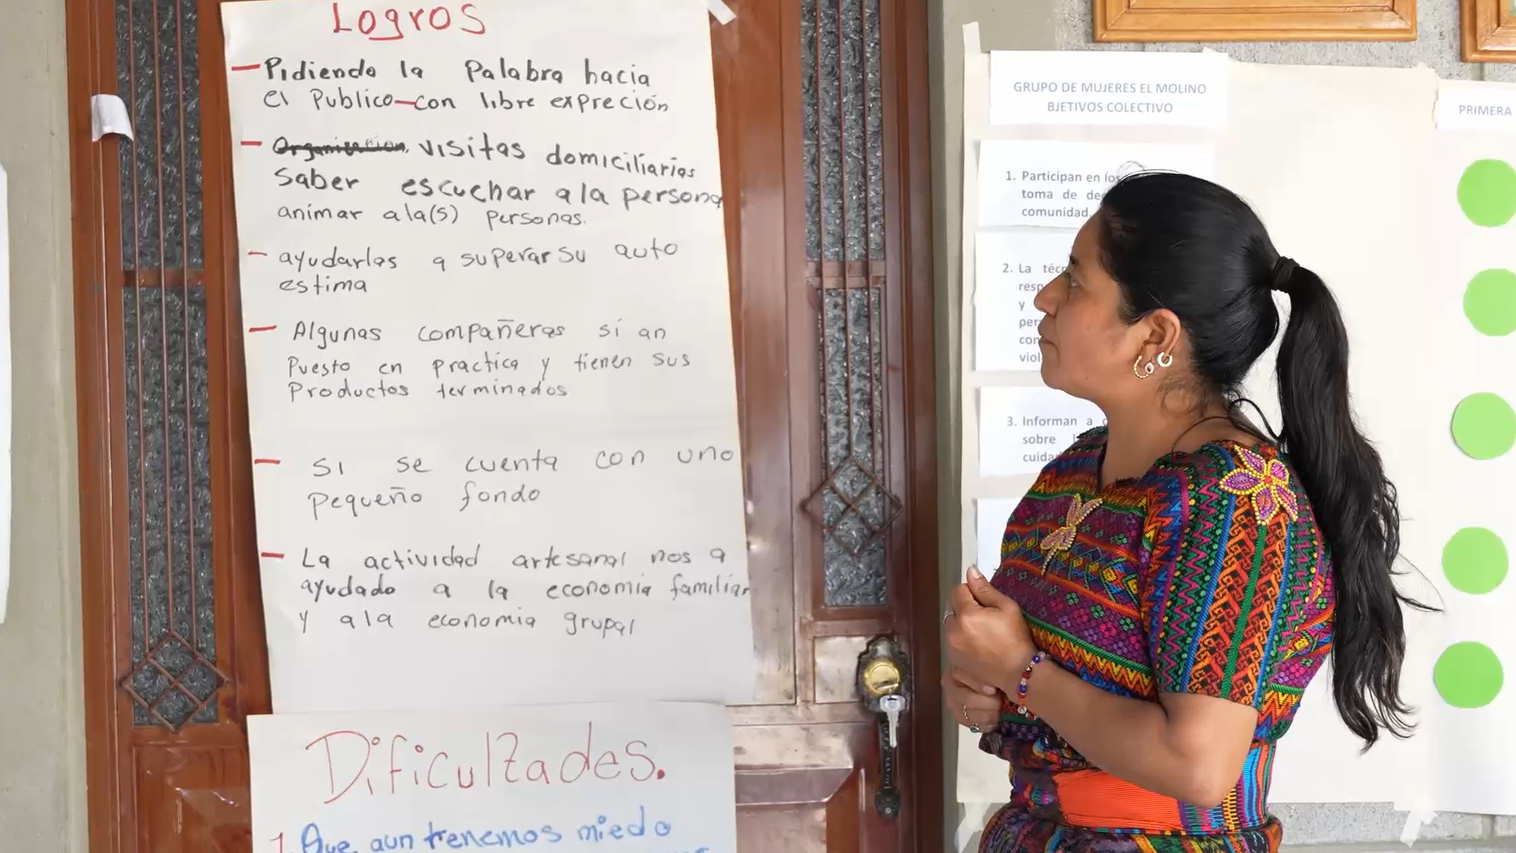 Logros
- Pidiendo la Palabra hacia
el Publico-con libre expreción
- Organizacion, visitas domiciliarias
Saber escuchar a la persona
animar ala(s) personas.
- ayudarlas a superar su auto
estima
- Algunas compañeras si an
Puesto en practica y tienen sus
Productos terminados
- si se cuenta con uno
pequeño fondo
- La actividad artesanal nos a
ayudado a la economia familiar
y ala economia grupal
Dificultades.
1 Que aun tenemos miedo
GRUPO DE MUJERES EL MOLINO
BJETIVOS COLECTIVO
1. Participan en los
toma de
comunidad.
2. La
y
3. Informan a
sobre
PRIMERA